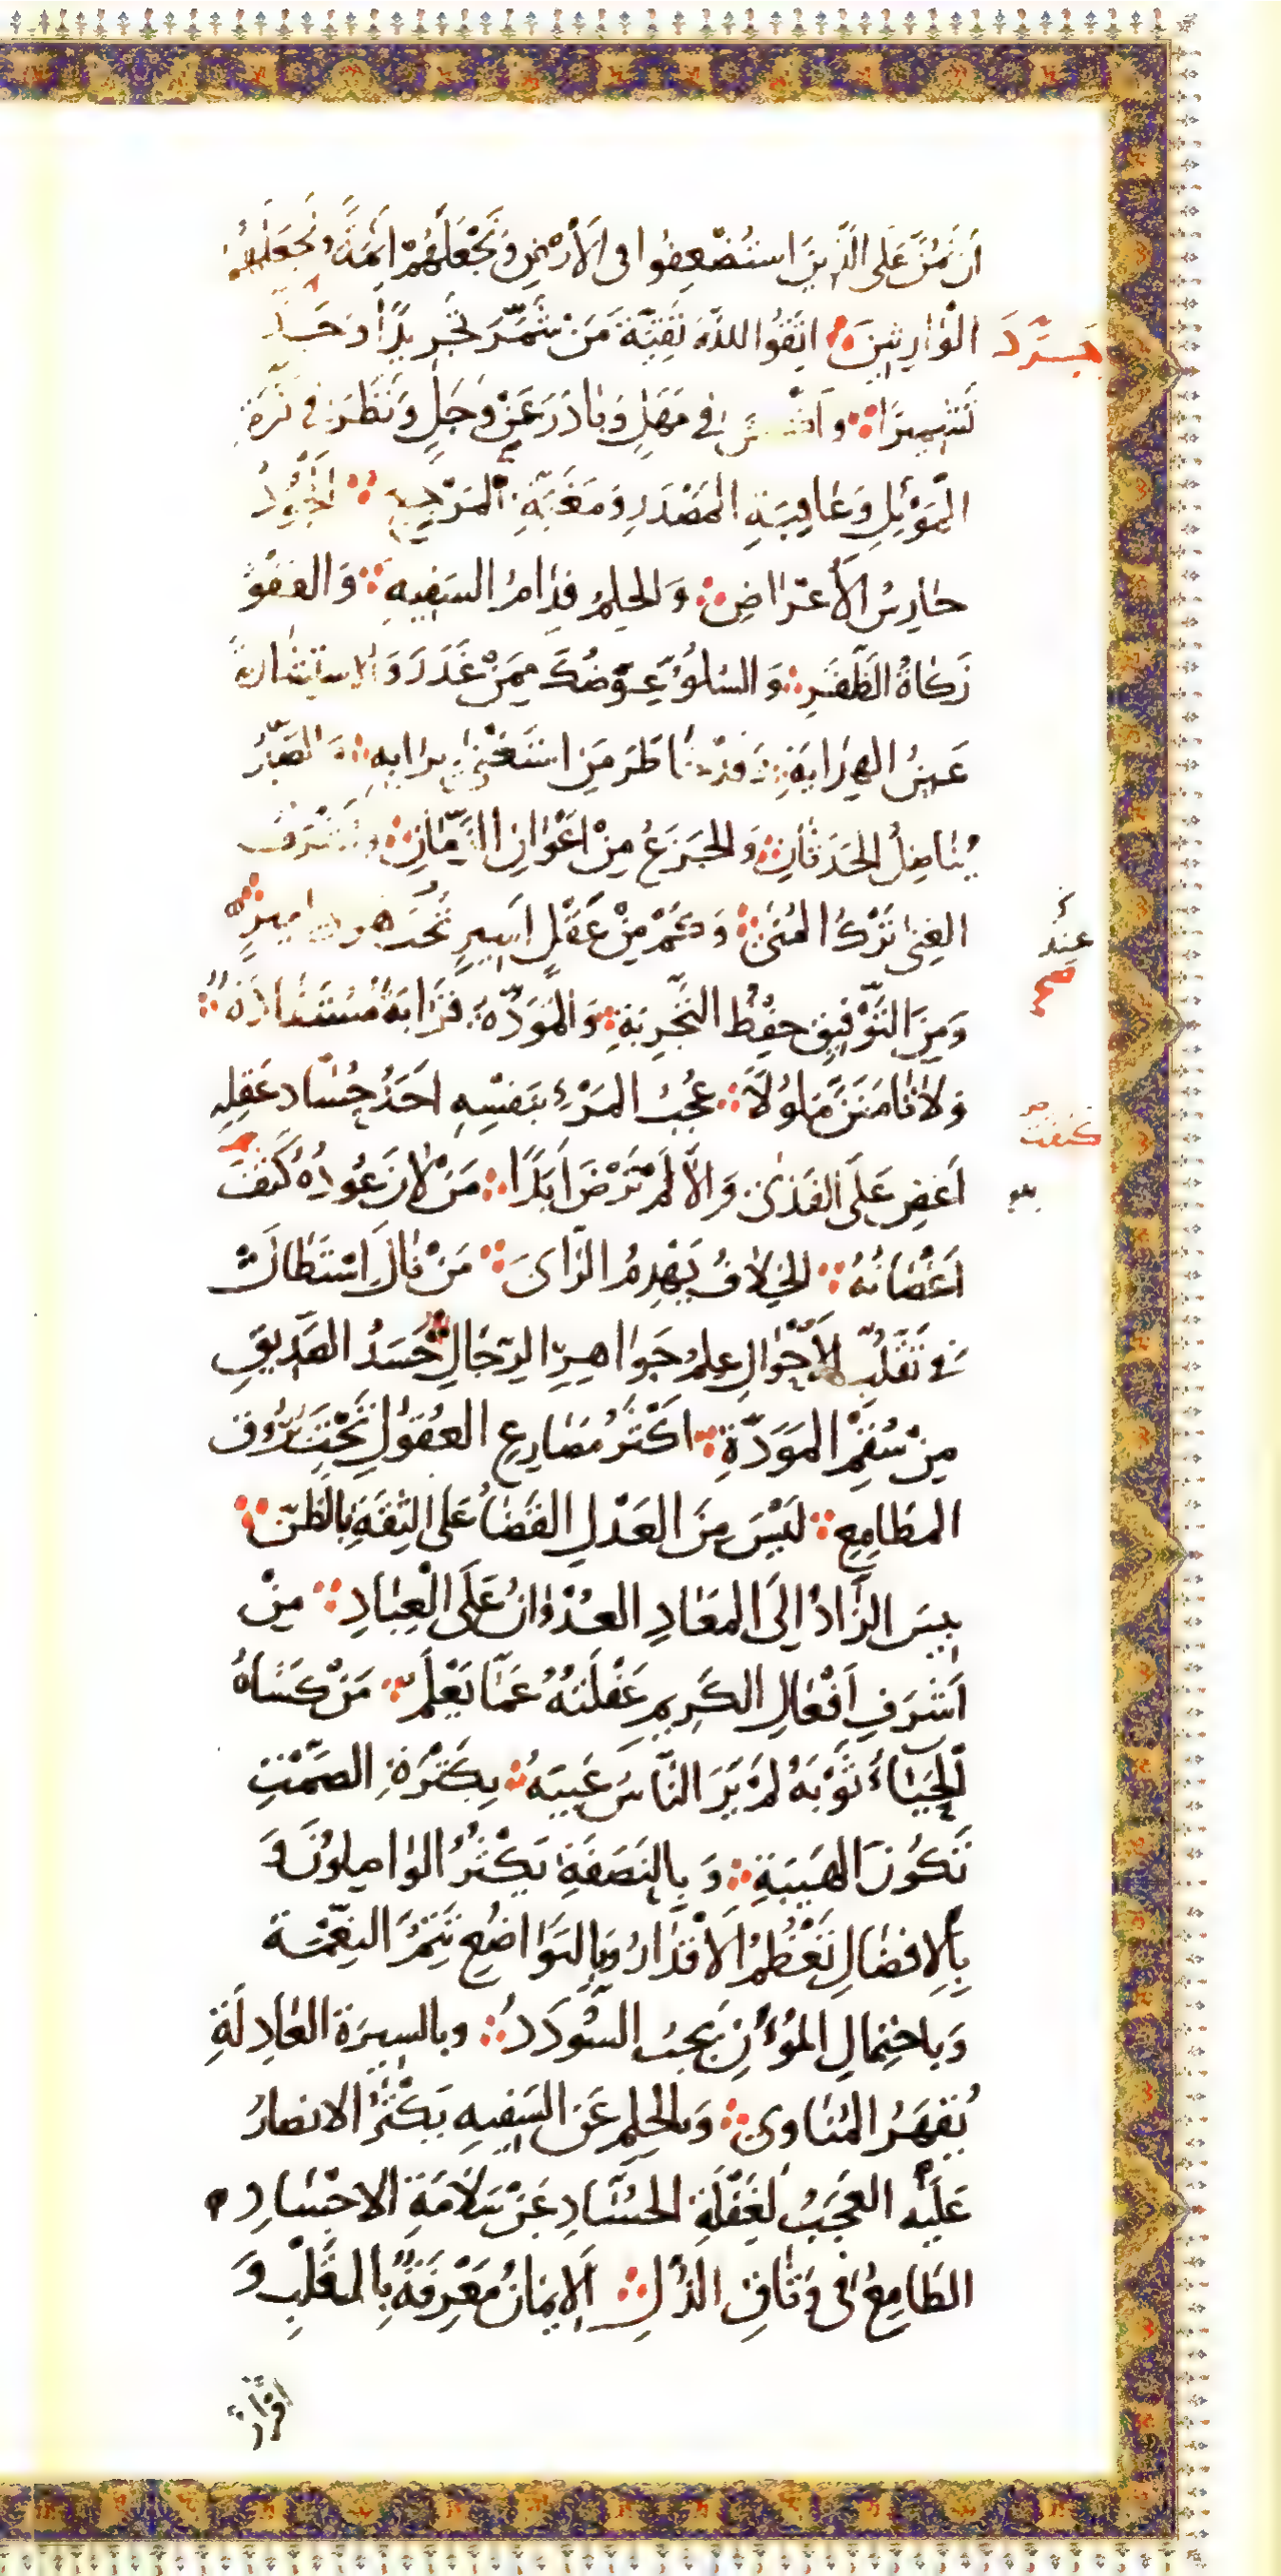 أَنْ نَمُنَّ عَلَى الَّذِينَ اسْتُضْعِفُوا فِى الْأَرْضِ وَنَجْعَلَهُمْ أَئِمَّةً وَنَجْعَلَهُمُ
الْوَارِثِينَ اتَّقُوا اللهَ تَقِيَّةَ مَنْ شَمَّرَ تَجْرِيدًا وَجَدَّ
جَرَّدَ
تَشْمِيرًا وَ فِي مَهَلٍ وَبَادَرَ عَنْ وَجَلٍ وَنَظَرَ فِي كَرَّةِ
الْمَوْئِلِ وَعَاقِبَةِ الْمَصْدَرِ وَمَغَبَّةِ الْمَرْجِعِ الْجُودُ
حَارِسُ الْأَعْرَاضِ وَالْحِلْمُ فِدَامُ السَّفِيهِ وَالْعَفْوُ
زَكَاةُ الظَّفَرِ وَالسُّلُوُّ عِوَضُكَ مِمَّنْ غَدَرَ وَالْاِسْتِشَارَةُ
عَيْنُ الْهِدَايَةِ وَقَدْ خَاطَرَ مَنِ اسْتَغْنَى بِرَأْيِهِ وَالصَّبْرُ
يُنَاضِلُ الْحَدَثَانِ وَالْجَزَعُ مِنْ أَعْوَانِ الزَّمَانِ وَأَشْرَفُ
الْغِنَى تَرْكُ الْمُنَى وَكَمْ مِنْ عَقْلٍ أَسِيرٍ تَحْتَ هَوَى أَمِيرٍ
عِنْدَ
صح
وَمِنَ التَّوْفِيقِ حِفْظُ التَّجْرِبَةِ وَالْمَوَدَّةُ قَرَابَةٌ مُسْتَفَادَةٌ
وَلَا تَأْمَنَنَّ مَلُولًا عُجْبُ الْمَرْءِ بِنَفْسِهِ أَحَدُ حُسَّادِ عَقْلِهِ
أَغْضِ عَلَى الْقَذَى وَإِلَّا لَمْ تَرْضَ أَبَدًا مَنْ لَانَ عُودُهُ كَثُفَ
أَغْصَانُهُ الْخِلَافُ يَهْدِمُ الرَّأْىَ مَنْ نَالَ اسْتَطَالَ
فِى تَقَلُّبِ الْأَحْوَالِ عِلْمُ جَوَاهِرِ الرِّجَالِ حَسَدُ الصَّدِيقِ
مِنْ سُقْمِ الْمَوَدَّةِ أَكْثَرُ مَصَارِعِ الْعُقُولِ تَحْتَ بُرُوقِ
الْمَطَامِعِ لَيْسَ مِنَ الْعَدْلِ الْقَضَاءُ عَلَى الثِّقَةِ بِالظَّنِّ
بِئْسَ الزَّادُ إِلَى الْمَعَادِ الْعُدْوَانُ عَلَى الْعِبَادِ مِنْ
أَشْرَفِ أَفْعَالِ الْكَرِيمِ غَفْلَتُهُ عَمَّا يَعْلَمُ مَنْ كَسَاهُ
الْحَيَاءُ ثَوْبَهُ لَمْ يَرَ النَّاسُ عَيْبَهُ بِكَثْرَةِ الصَّمْتِ
تَكُونُ الْهَيْبَةُ وَبِالنَّصَفَةِ يَكْثُرُ الْوَاصِلُونَ وَ
بِالْإِفْضَالِ تَعْظُمُ الْأَقْدَارُ وَبِالتَّوَاضُعِ تَتِمُّ النِّعْمَةُ
وَبِاحْتِمَالِ الْمُؤَنِ يَجِبُ السُّودَدُ وَبِالسِّيرَةِ الْعَادِلَةِ
يُقْهَرُ الْمُنَاوِي وَبِالْحِلْمِ عَنِ السَّفِيهِ يَكْثُرُ الْأَنْصَارُ
عَلَيْهِ الْعَجَبُ لِغَفْلَةِ الْحُسَّادِ عَنْ سَلَامَةِ الْأَجْسَادِ
الطَّامِعُ فِى وَثَاقِ الذُّلِّ الْإِيمَانُ مَعْرِفَةٌ بِالْقَلْبِ وَ